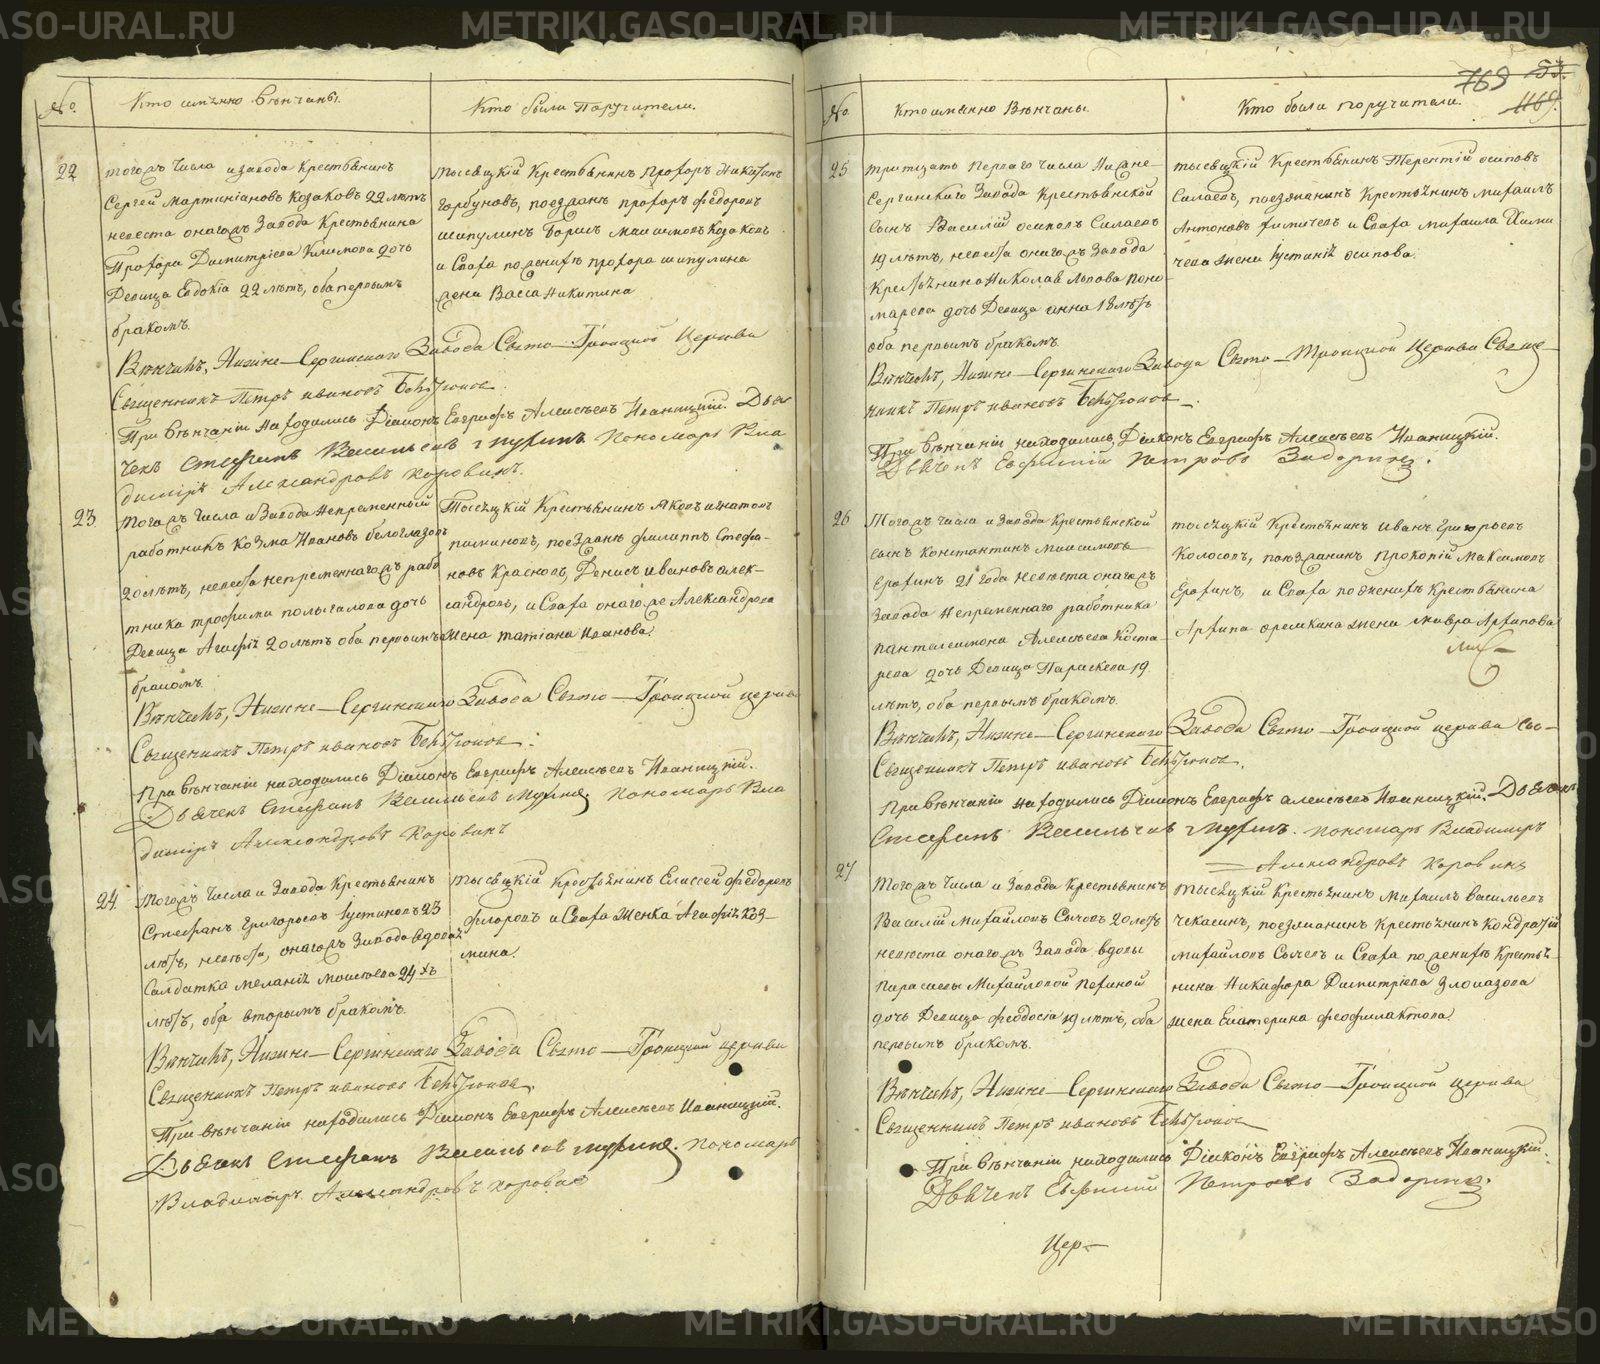 №. Кто имѣнно вѣнчаны. Кто были Поручители.
22 тогожъ числа и завода Крестьянинъ
Сергей Мартиніановъ Козаковъ 22 лѣтъ
невеста онагожъ завода Крестьянина
Профора Димитріева Климова дочь
Девица Евдокія 22 лѣтъ, оба первымъ
бракомъ.
тысяцкій Крестьянинъ Профоръ Никитинъ
Горбуновъ, поезжанѣ профоръ федоровъ
шипулинъ борисъ максимовъ Козаковъ
и Сваха поженихѣ профора шипулина
жена Васса Никитина
Вѣнчалъ, Нижне-Сергинскаго Завода Свято-Троицкой Церкви
Священникъ Петръ ивановъ
При вѣнчаніи находились Діаконъ Евграфъ Алексѣевъ Иваницкій. Дья
чекъ Стефанъ Васильевъ Пономарь Вла
димиръ Александровъ Коровинъ.
23 тогожъ числа и Завода Непременный
работникъ Козма Ивановъ белоглазовъ
20 лѣтъ, невеста непременнагожъ рабо
тника трофима полыгалова дочь
Девица Агафія 20 лѣтъ оба первымъ
бракомъ.
Тысяцкій Крестьянинъ Яковъ игнатовъ
поезжанѣ филиппъ Стефа-
новъ Красновъ, Денисъ ивановъ алек-
сандровъ, и Сваха онагоже Александрова
жена татіана Иванова.
Вѣнчалъ, Нижне-Сергинскаго Завода Свято-Троицкой церкви
Священникъ Петръ ивановъ
При вѣнчаніи находились Діаконъ Евграфъ Алексѣевъ Иваницкій.
Дьячекъ Стефанъ Васильевъ Пономарь Вла
димиръ Александровъ Коровинъ
24. тогожъ числа и Завода Крестьянинъ
Стефанъ Григорьевъ Устиновъ 23
лѣтъ, невеста, онагожъ Завода вдова
Салдатка меланія моисѣева 24хъ
лѣтъ, оба вторымъ бракомъ.
тысяцкій Крестьянинъ Елисей федоровъ
флоровъ и Сваха Женка Агафія Коз-
мина.
Вѣнчалъ, Нижне-Сергинскаго Завода Свято-Троицкой церкви
Священникъ Петръ ивановъ
При вѣнчаніи находились Діаконъ Евграфъ Алексѣевъ Иваницкій.
Дьячекъ Стефанъ Васильевъ Пономарь
Владимиръ Александровъ Коровинъ
769 53.
1169.
№ Кто имянно Вѣнчаны. Кто были поручители.
25 тритцать перваго числа Нижне-
Сергинскаго Завода Крестьянской
Сынъ Василій осиповъ Силаевъ
19 лѣтъ, невеста онагожъ Завода
Крестьянина Николая Львова Поно-
марева дочь Девица анна 18 лѣтъ
оба первымъ бракомъ.
тысяцкій Крестьянинъ Терентій осиповъ
Силаевъ, поезжанинъ Крестьянинъ михаилъ
Антоновъ Химичевъ и Сваха михаила Хими
чева жена Устинія осипова.
Вѣнчалъ, Нижне-Сергинскаго Завода Свято-Троицкой Церкви Свяще-
нникъ Петръ ивановъ
При вѣнчаніи находились Діаконъ Евграфъ Алексѣевъ Иваницкій.
Дьячекъ Евфимій Петровъ Задоринъ.
26 тогожъ числа и Завода Крестьянской
сынъ Константинъ Максимовъ
Ерахинъ 21 года невеста онагожъ
Завода Непременнаго работника
пантелеимона Алексѣева Коста-
рева дочь Девица Параскева 19.
лѣтъ, оба первымъ бракомъ.
тысяцкій Крестьянинъ иванъ Григорьевъ
Колосовъ, поезжанинъ прокопій Максимовъ
Ерахинъ, и Сваха поженихѣ Крестьянина
Архипа еремкина жена мавра Архипова
Вѣнчалъ, Нижне-Сергинскаго Завода Свято-Троицкой церкви Свя-
Священникъ Петръ ивановъ
При вѣнчаніи находились Діаконъ Евграфъ алексѣевъ Иваницкій. Дьячекъ
Стефанъ Васильевъ Пономарь Владимиръ
Александровъ Коровинъ
27 тогожъ числа и Завода Крестьянинъ
Василій Михайловъ Сычевъ 20 лѣтъ
невеста онагожъ Завода вдовы
Параскевы Михайловой
дочь Девица феодосія 19 лѣтъ, оба
первымъ бракомъ.
тысяцкій Крестьянинъ михаилъ васильевъ
чекасинъ, поезжанинъ Крестьянинъ Кондратій
михайловъ Сычевъ и Сваха поженихѣ Крестья-
нина Никифора Димитріева Злоказова
жена Екатерина феофилактова.
Вѣнчалъ, Нижне-Сергинскаго Завода Свято-Троицкой церкви
Священникъ Петръ ивановъ
При вѣнчаніи находились Діаконъ Евграфъ Алексѣевъ Иваницкій.
Дьячекъ Евфимій Петровъ Задоринъ.
Цер-
METRIKI.GASO-URAL.RU